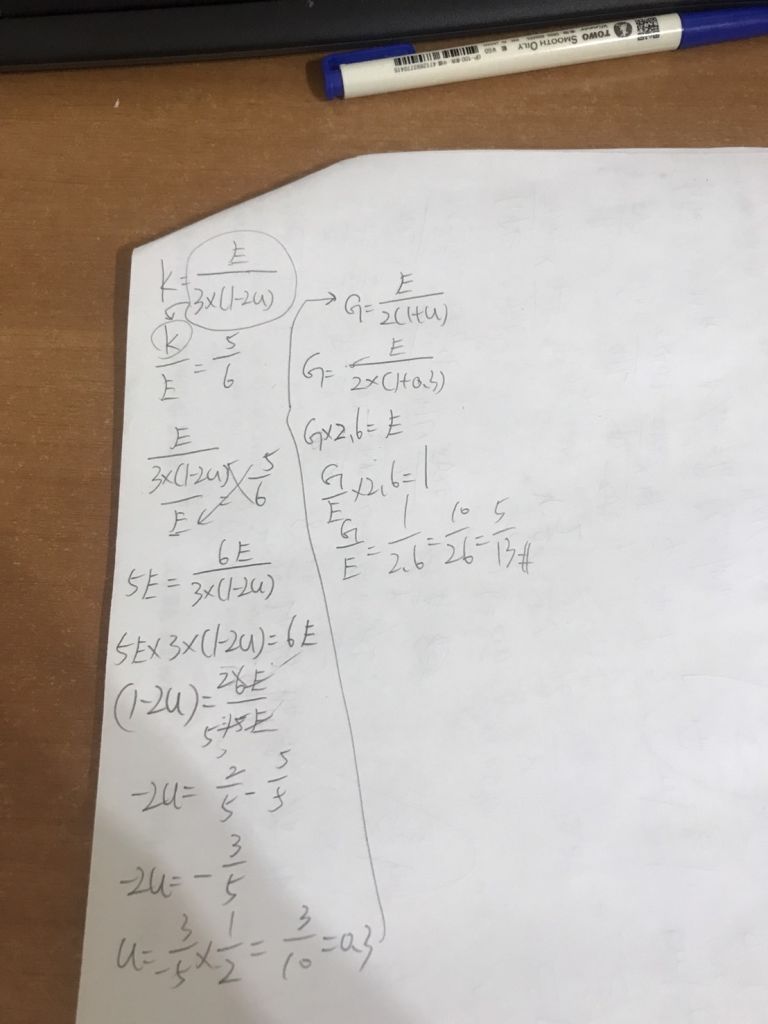 TOWO SMOOTH OILY
K = E / 3×(1-2u)
K / E = 5 / 6
E / 3×(1-2u) / E = 5 / 6
5E = 6E / 3×(1-2u)
5E×3×(1-2u) = 6E
(1-2u) = 2 6E / 5 15E
-2u = 2 / 5 - 5 / 5
-2u = - 3 / 5
u = 3 / -5 × 1 / -2 = 3 / 10 = 0.3
→ G = E / 2(1+u)
G = E / 2×(1+0.3)
G×2.6 = E
G / E ×2.6 = 1
G / E = 1 / 2.6 = 10 / 26 = 5 / 13 #